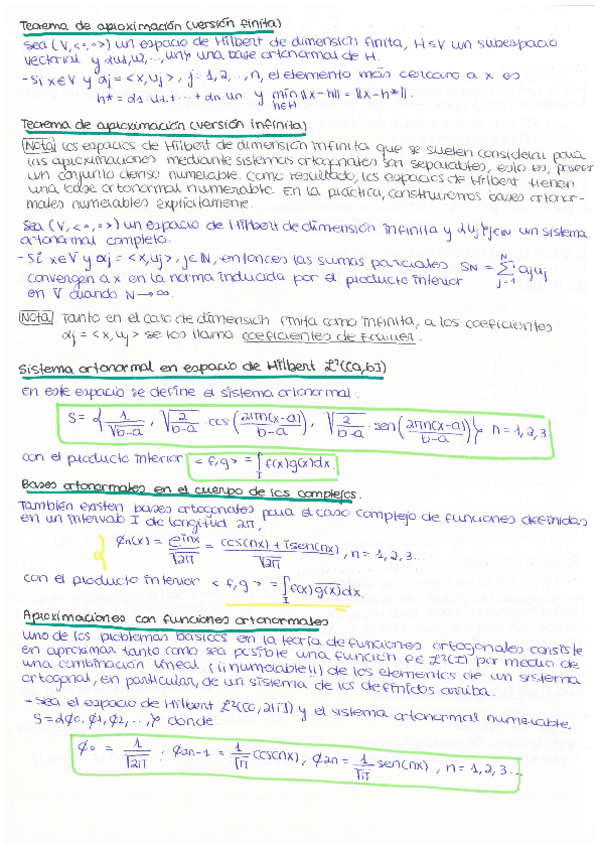 Teorema de aproximación (versión finita)
Sea (V, <·,·>) un espacio de Hilbert de dimensión finita, H ≤ V un subespacio
vectorial y {u1, u2, ..., un} una base ortonormal de H.
- Si x∈V y αj = <x, uj>, j = 1, 2, .., n, el elemento más cercano a x es
h* = α1·u1 + ··· + αn un y min h∈H ||x-h|| = ||x-h*||.
Teorema de aproximación (versión infinita)
Nota los espacios de Hilbert de dimensión infinita que se suelen considerar para
las aproximaciones mediante sistemas ortogonales son separables, esto es, poseer
un conjunto denso numerable. Como resultado, los espacios de Hilbert tienen
una base ortonormal numerable. En la práctica, construiremos bases ortonor-
males numerables explícitamente.
Sea (V, <·,·>) un espacio de Hilbert de dimensión infinita y {uj}j∈ℕ un sistema
ortonormal completo.
- Si x∈V y αj = <x, uj>, j∈ℕ, entonces las sumas parciales SN = Σ_{j=1}^{N} αj uj
convergen a x en la norma inducida por el producto interior
en V cuando N → ∞.
Nota Tanto en el caso de dimensión finita como infinita, a los coeficientes
αj = <x, uj> se los llama coeficientes de Fourier.
Sistema ortonormal en espacio de Hilbert ℒ²([a,b])
En este espacio se define el sistema ortonormal:
S = { 1/√(b-a), √(2/(b-a)) · cos(2πn(x-a)/(b-a)), √(2/(b-a)) · sen(2πn(x-a)/(b-a)) } n = 1, 2, 3..
con el producto interior <f, g> = ∫_I f(x)g(x)dx.
Bases ortonormales en el cuerpo de los complejos.
También existen bases ortogonales para el caso complejo de funciones definidas
en un intervalo I de longitud 2π,
{ φn(x) = e^{inx}/√2π = (cos(nx) + i sen(nx))/√2π, n = 1, 2, 3...
con el producto interior <f, g> = ∫_I f(x)g̅(̅x̅)̅dx.
Aproximaciones con funciones ortonormales
Uno de los problemas básicos en la teoría de funciones ortogonales consiste
en aproximar tanto como sea posible una función f∈ℒ²(I) por medio de
una combinación lineal (¡¡numerable!!) de los elementos de un sistema
ortogonal, en particular, de un sistema de los definidos arriba.
- Sea el espacio de Hilbert ℒ²([0,2π]) y el sistema ortonormal numerable.
S = {φ0, φ1, φ2, ..., } donde
φ0 = 1/√2π, φ2n-1 = 1/√π cos(nx), φ2n = 1/√π sen(nx), n = 1, 2, 3...